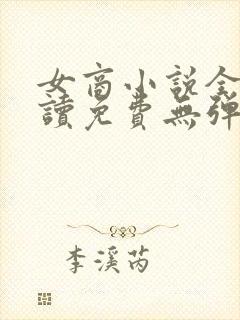 女商小說全
讀免費無彈
李溪芮